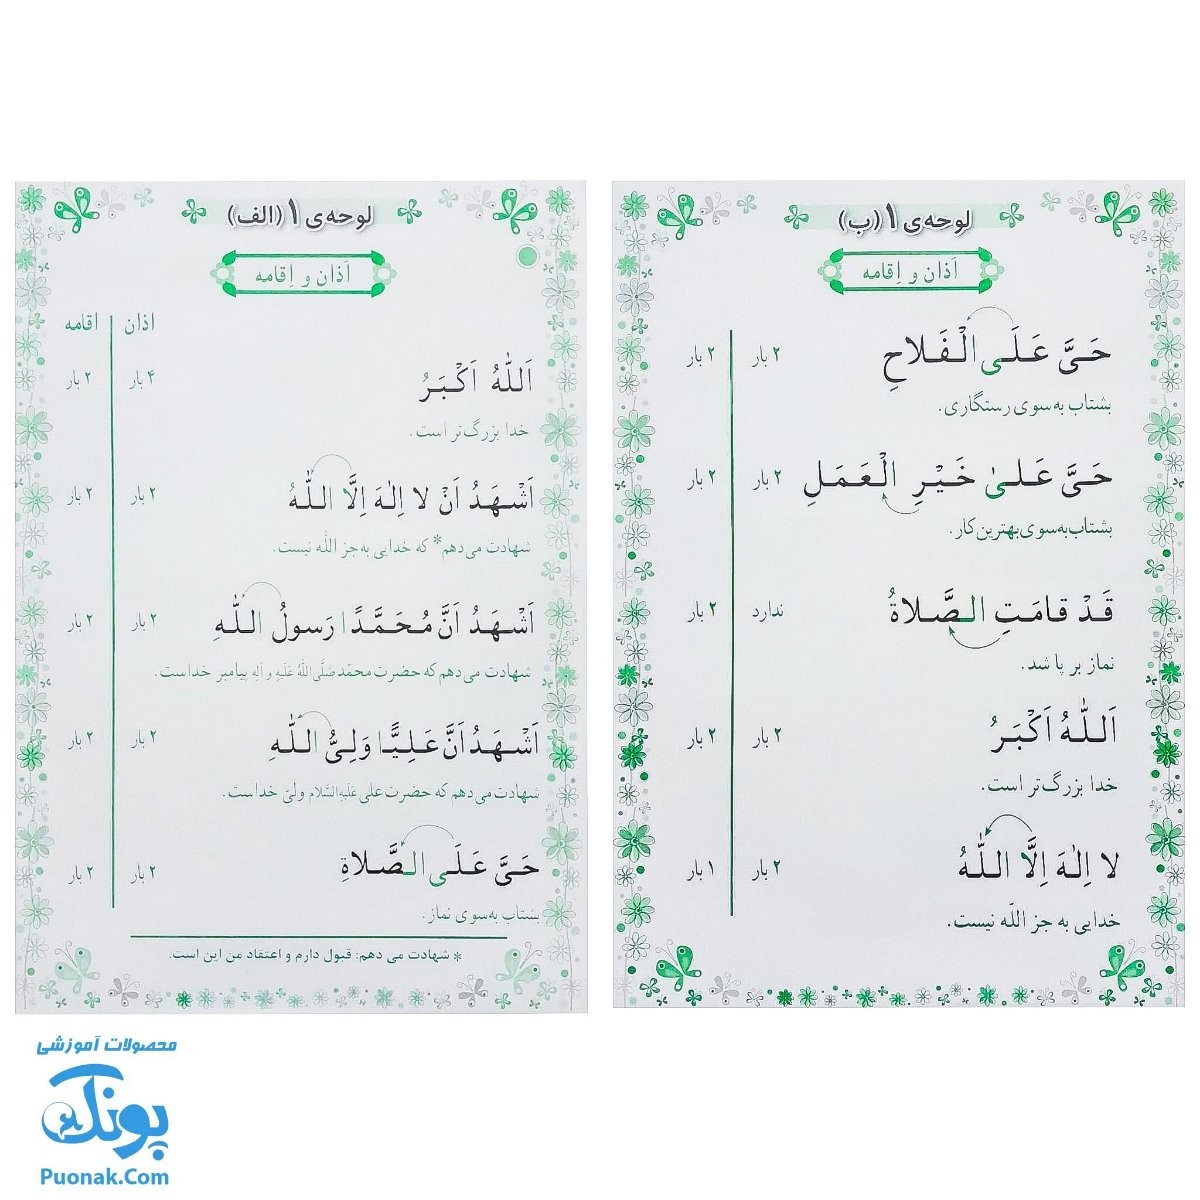 لوحه‌ی ۱ (الف)
اَذان و اِقامه
اذان اقامه
اَللّٰهُ اَکْبَرُ ۴ بار ۲ بار
خدا بزرگ‌تر است.
اَشْهَدُ اَنْ لا اِلٰهَ اِلَّا اللّٰهُ ۲ بار ۲ بار
شهادت می‌دهم* که خدایی به‌جز اللّه نیست.
اَشْهَدُ اَنَّ مُحَمَّدًا رَسولُ اللّٰهِ ۲ بار ۲ بار
شهادت می‌دهم که حضرت محمّد صَلَّی اللهُ عَلَیهِ و آلِه پیامبر خداست.
اَشْهَدُ اَنَّ عَلِیًّا وَلِیُّ اللّٰهِ ۲ بار ۲ بار
شهادت می‌دهم که حضرت علی عَلَیهِ السَّلام ولیّ خداست.
حَیَّ عَلَی الصَّلاةِ ۲ بار ۲ بار
بشتاب به‌سوی نماز.
* شهادت می دهم: قبول دارم و اعتقاد من این است.
لوحه‌ی ۱ (ب)
اَذان و اِقامه
حَیَّ عَلَی الْفَلاحِ ۲ بار ۲ بار
بشتاب به‌سوی رستگاری.
حَیَّ عَلیٰ خَیْرِ الْعَمَلِ ۲ بار ۲ بار
بشتاب به‌سوی بهترین کار.
قَدْ قامَتِ الصَّلاةُ ندارد ۲ بار
نماز بر پا شد.
اَللّٰهُ اَکْبَرُ ۲ بار ۲ بار
خدا بزرگ‌تر است.
لا اِلٰهَ اِلَّا اللّٰهُ ۲ بار ۱ بار
خدایی به جز اللّه نیست.
محصولات آموزشی
پونک
Puonak.Com